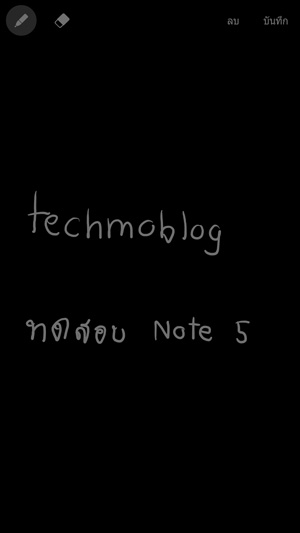 ลบ บันทึก
techmoblog
ทดสอบ Note 5